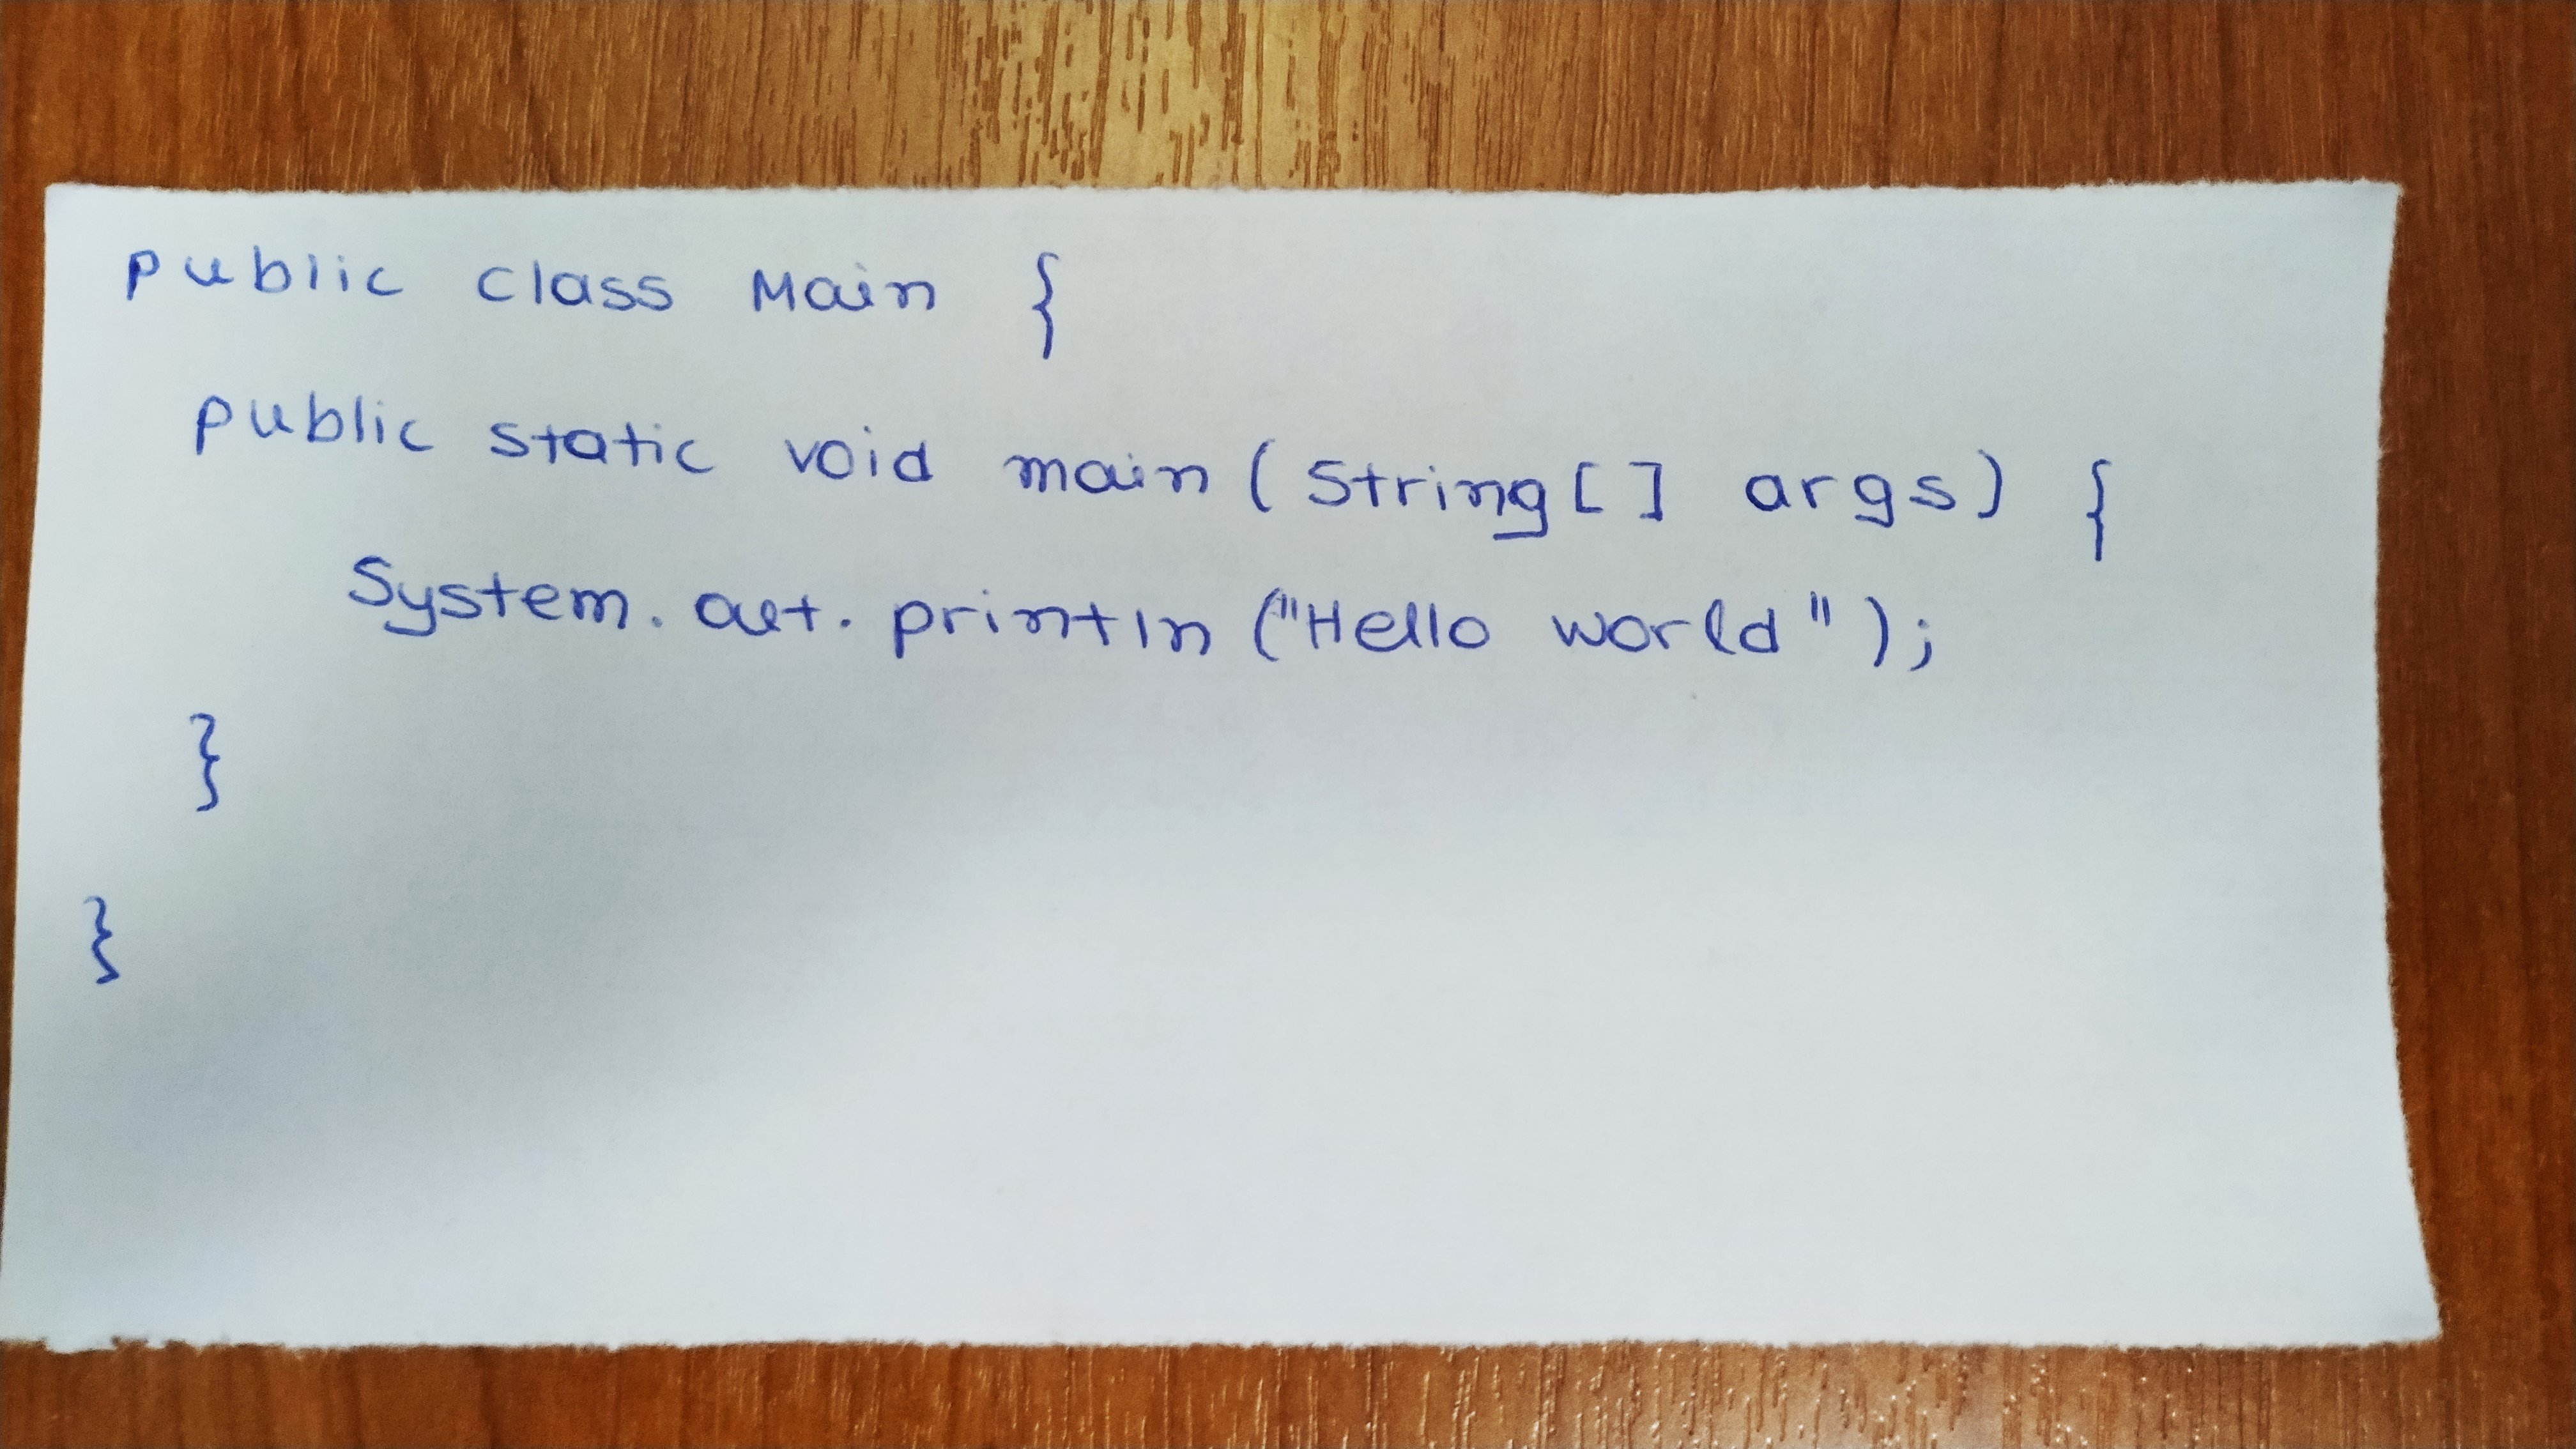 public class Main {
public static void main (String[] args) {
System.out.println ("Hello world");
}
}